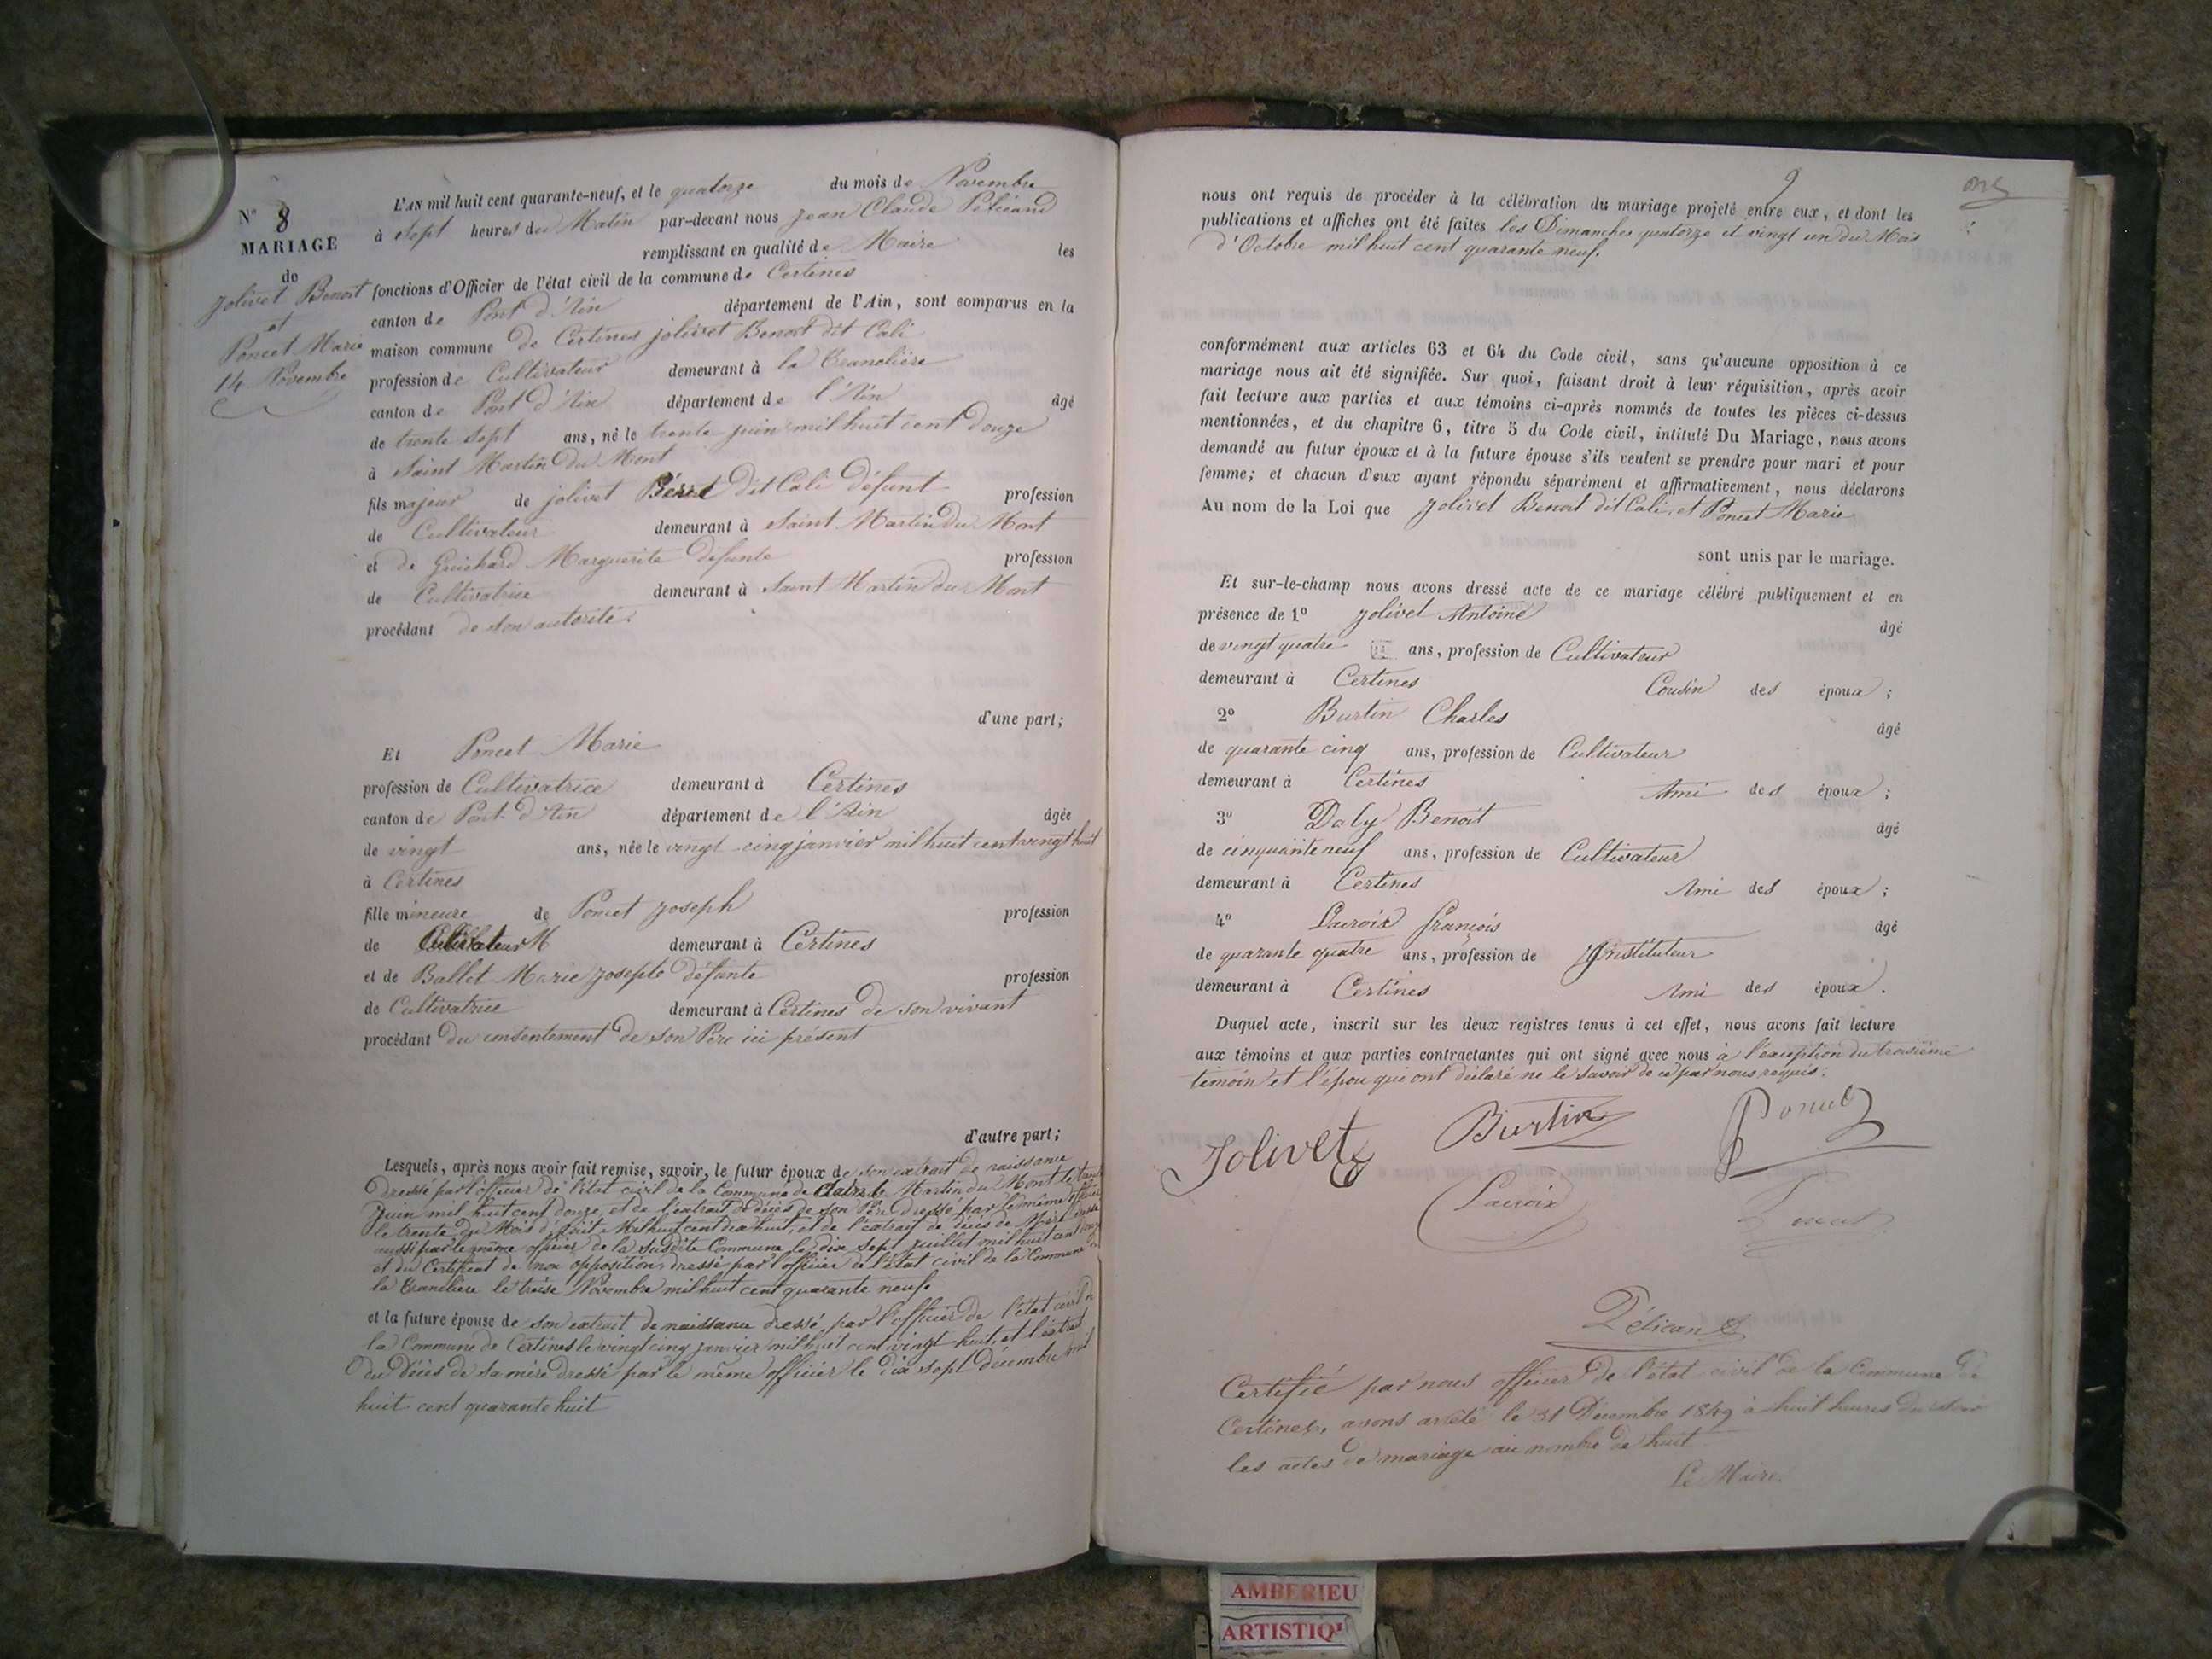 N° 8
MARIAGE
de
Jolivet Benoit
et
Poncet Marie
14 Novembre
L'AN mil huit cent quarante-neuf, et le quatorze du mois de Novembre
à Sept heures du Matin par-devant nous Jean Claude Pélicand
remplissant en qualité de Maire les
fonctions d'Officier de l'état civil de la commune de Certines
canton de Pont d'Ain département de l'Ain, sont comparus en la
maison commune de Certines jolivet Benoit dit Cali
profession de Cultivateur demeurant à la Tranclière
canton de Pont d'Ain département de l'Ain âgé
de trente sept ans, né le trente juin mil huit cent douze
à Saint Martin du Mont
fils majeur de jolivet dit Cali défunt profession
de Cultivateur demeurant à Saint Martin du Mont
et de Guichard Marguerite défunte profession
de Cultivatrice demeurant à Saint Martin du Mont
procédant de son autorité.
d'une part;
Et Poncet Marie
profession de Cultivatrice demeurant à Certines
canton de Pont d'Ain département de l'Ain âgée
de vingt ans, née le vingt cinq janvier mil huit cent vingt huit
à Certines
fille mineure de Poncet Joseph profession
de Cultivateur demeurant à Certines
et de Ballet Marie josephte défunte profession
de Cultivatrice demeurant à Certines de son vivant
procédant du consentement de son Père ici présent
d'autre part;
Lesquels, après nous avoir fait remise, savoir, le futur époux de son extrait de naissance
Dressé par l'officier de l'état civil de la Commune de Martin du Mont le trente
Juin mil huit cent douze, et de l'extrait de décès de son Père dressé par le même officier
le trente du Mois d'Août Mil huit cent dix huit, et de l'extrait de décès de
aussi par le même officier de la susdite Commune le dix sept juillet mil huit cent
et du Certificat de non opposition dressé par l'officier de l'état civil de la Commune de
la Tranclière le treize Novembre mil huit cent quarante neuf.
et la future épouse de son extrait de naissance dressé par l'officier de l'état civil de
la Commune de Certines le vingt cinq janvier mil huit cent vingt-huit, et l'extrait
du décès de sa mère dressé par le même officier le dix sept décembre mil
huit cent quarante huit
9
nous ont requis de procéder à la célébration du mariage projeté entre eux, et dont les
publications et affiches ont été faites les Dimanches quatorze et vingt un du Mois
d'Octobre mil huit cent quarante neuf.
conformément aux articles 63 et 64 du Code civil, sans qu'aucune opposition à ce
mariage nous ait été signifiée. Sur quoi, faisant droit à leur réquisition, après avoir
fait lecture aux parties et aux témoins ci-après nommés de toutes les pièces ci-dessus
mentionnées, et du chapitre 6, titre 5 du Code civil, intitulé Du Mariage, nous avons
demandé au futur époux et à la future épouse s'ils veulent se prendre pour mari et pour
femme; et chacun d'eux ayant répondu séparément et affirmativement, nous déclarons
Au nom de la Loi que Jolivet Benoit dit Cali, et Poncet Marie
sont unis par le mariage.
Et sur-le-champ nous avons dressé acte de ce mariage célébré publiquement et en
présence de 1° Jolivet Antoine âgé
de vingt quatre ans, profession de Cultivateur
demeurant à Certines Cousin des époux;
2° Burtin Charles âgé
de quarante cinq ans, profession de Cultivateur
demeurant à Certines Ami des époux;
3° Daly Benoit âgé
de cinquante neuf ans, profession de Cultivateur
demeurant à Certines Ami des époux;
4° Lacroix françois âgé
de quarante quatre ans, profession de Instituteur
demeurant à Certines Ami des époux.
Duquel acte, inscrit sur les deux registres tenus à cet effet, nous avons fait lecture
aux témoins et aux parties contractantes qui ont signé avec nous à l'exception du troisième
témoin et l'épou qui ont déclaré ne le savoir de ce par nous requis.
Jolivet Burtin Poncet
Lacroix
Pélicand
Certifié par nous officier de l'état civil de la Commune de
Certines, avons arrêté le 31 Décembre 1849 à huit heures du soir
les actes de mariage au nombre de huit
Le Maire.
AMBERIEU
ARTISTIQ